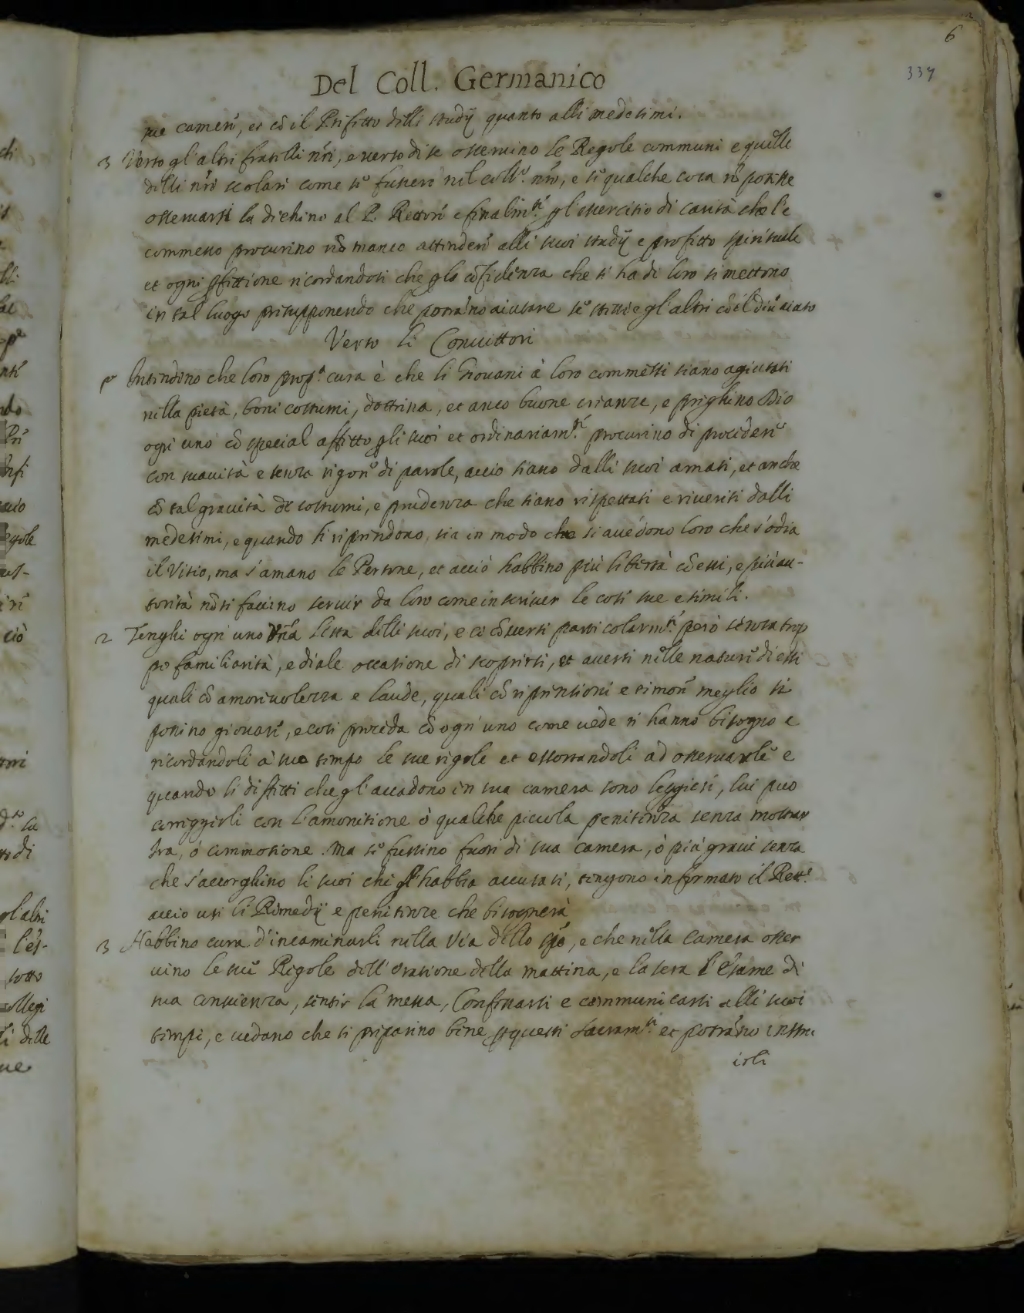 6
337
Del Coll. Germanico
sue camerè, et cõ il Prefetto delli studij quanto alli medesimi.
3 Verso gl'altri fratelli nri, e verso di se osservino le Regole communi e quelle
delli nri scolari come se fussero nel collo. nro, e se qualche cosa nõ potesse
osservarsi la dichino al P. Rettorè e finalmte. pl'essercitio di carità che l'è
commesso procurino nõ manco attenderè alli suoi studij e profitto spirituale
et ogni pfettione ricordandosi che p la cõfidenza che si ha di loro si mettono
in tal luogo presupponendo che potranno aiutare se stessi e gl'altri cõ il divi aiuto
Verso li Convittori
p° Intendino che loro propa. cura è che li Giovani à loro commessi siano agiutati
nella pietà, boni costumi, dottrina, et anco buone crianze, e preghino Dio
ogni uno cõ special affetto pli suoi et ordinariamte. procurino di procederè
con suavità e senza rigorè di parole, acciò siano dalli suoi amati, et anche
cõ tal gravità de costumi, e prudenza che siano rispettati e riveriti dalli
medesimi, e quando li riprendono, sia in modo che si avedono loro che s'odia
il Vitio, ma s'amano le Persone, et acciò habbino più libertà cõ essi, e più au-
torità nõ si faccino servir da loro come in scriver le cose sue e simili.
2 Tenghi ogni uno una lista delli suoi, e cõversi particolarmte. però senza trop
po familiarità, e dia le occasione di scoprirsi, et averti nelle naturè di essi
quali cõ amorevolezza e laude, quali cõ riprensioni e timorè meglio si
possino giovarè, e così proceda cõ ogn'uno come vede ni hanno bisogno e
ricordandoli à suo tempo le sue regole et essortandoli ad osservarle e
quando li diffetti che gl'accadono in sua camera sono leggieri, lui può
correggierli con l'amonitione ò qualche piccola penitenza senza mostrar
Ira, ò commotione. Ma se fussino fuori di sua camera, ò più gravi senza
che s'accorghino li suoi che gli habbia accusati, tenghono informato il Rettè.
acciò usi li Rimedij e penitenze che bisognerà
3 Habbino cura d'incaminarli nella Via dello spõ, e che nella Camera osser
vino le sue Regole dell'oratione della mattina, e la sera l'Esame di
sua conscienza, sentir la messa, Confessarsi e communicarsi alli suoi
tempi, e vedano che si preparino bene p questi Sacramti. et potranno instru
irli